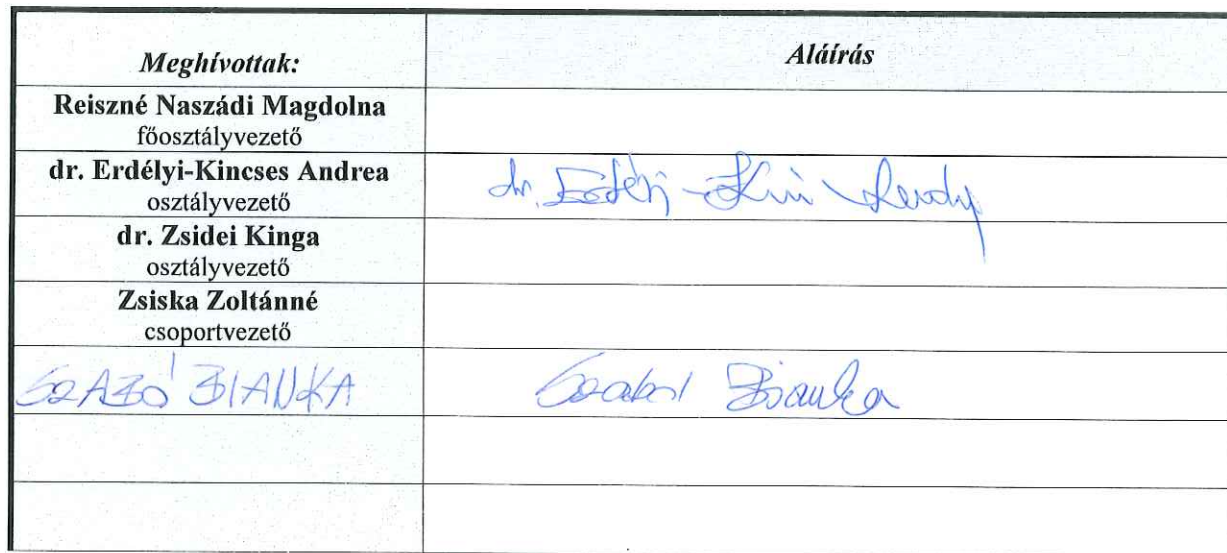 Meghívottak: Aláírás
Reiszné Naszádi Magdolna
főosztályvezető
dr. Erdélyi-Kincses Andrea
osztályvezető
dr.
dr. Zsidei Kinga
osztályvezető
Zsiska Zoltánné
csoportvezető
SZABÓ BIANKA Szabó Bianka